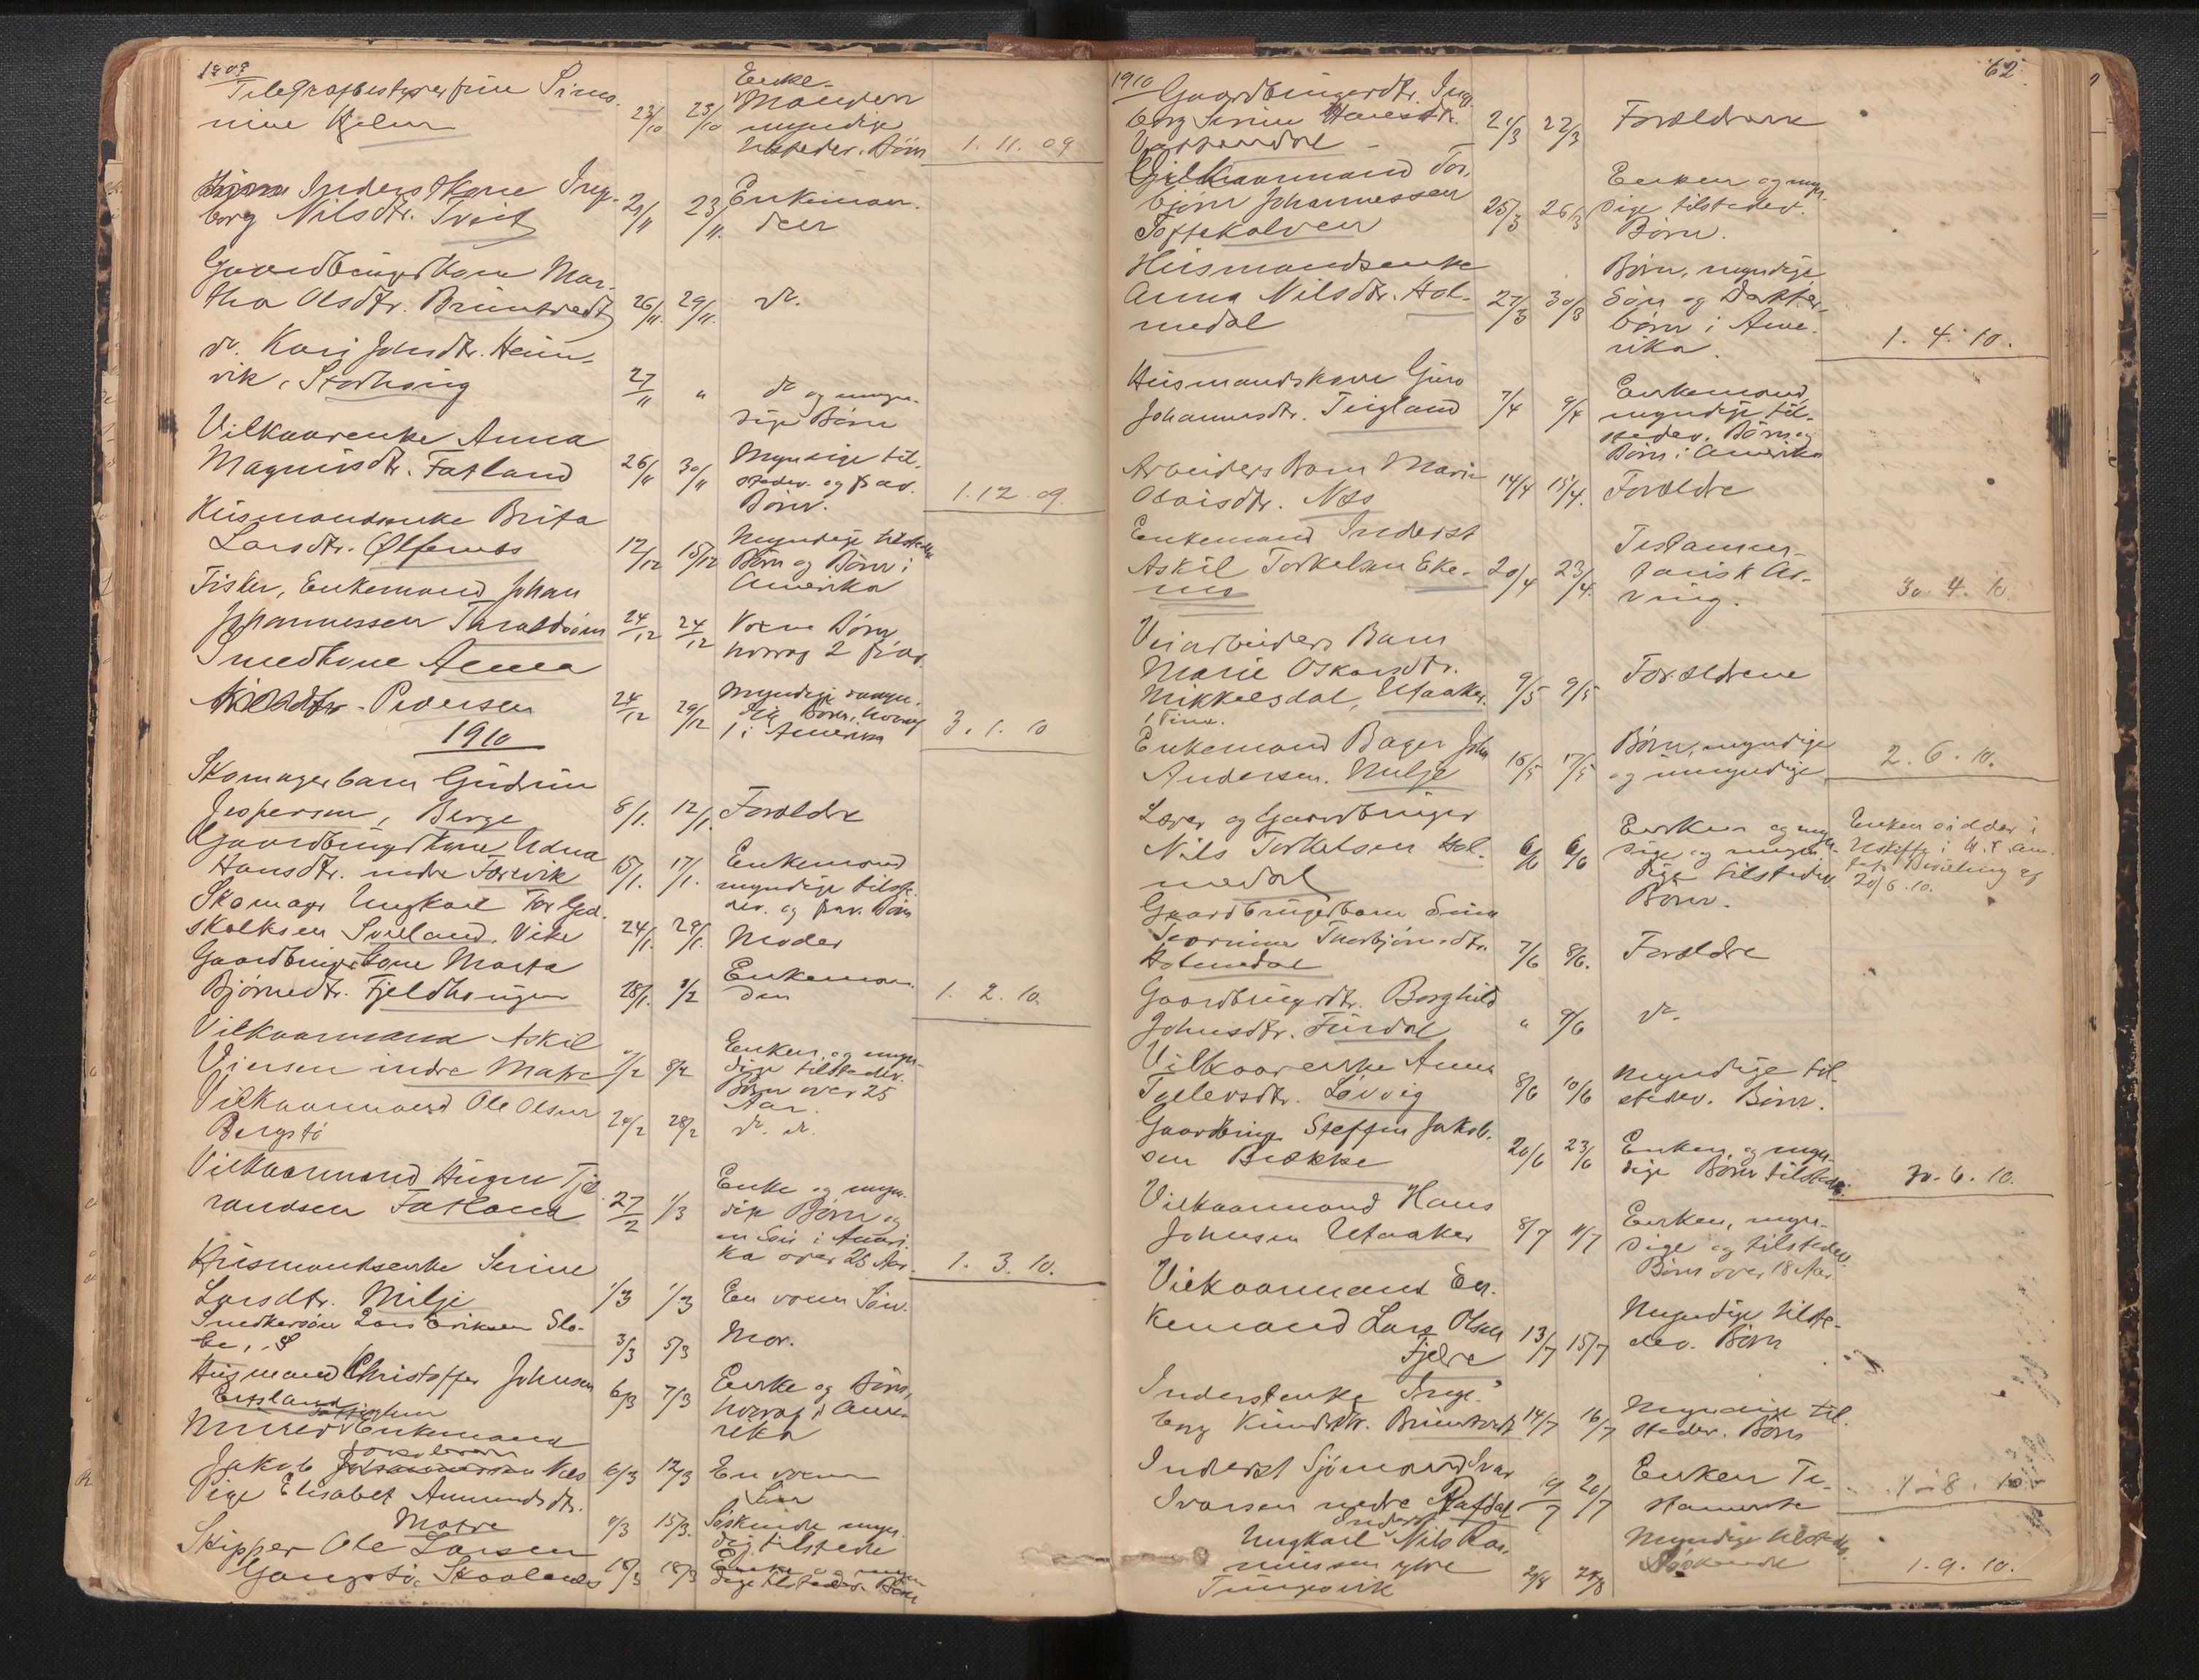 1909
Telegrafbestyrerfrue Simo-
nine Hjelm 23/10 23/10 Enke-
Manden
myndige
tilstedev. Børn 1. 11. 09
Inderstkone Inge-
borg Nilsdtr. Tveit 21/11 23/11. Enkeman-
den
Gaardbrugerkone Mar-
tha Olsdtr. Bruntvedt 26/11. 29/11. do.
do. Kari Johsdtr. Heim-
vik, Storhaug 27/11 " do og myn-
dige Børn
Vilkaarenke Anna
Magnusdtr. Fatland 26/11 30/11 Myndige til-
stedev. og frav.
Børn. 1. 12. 09.
Husmandsenke Brita
Larsdtr. Ølfernes 12/12 15/12 Myndige tilstedev.
Børn og Børn i
Amerika
Fisker, Enkemand Johan
Johannessen Taraldsøen 24/12 24/12 Voxne Børn,
hvorav 2 frav.
Smedkone Anna
Nilsdtr. Pedersen 24/12 29/12 Myndige
Børn, hvorav
1 i Amerika 3. 1. 10
1910
Skomagerbarn Gudrun
Jespersen, Berge 8/1. 12/1. Forældre
Gaardbrugerkone Udna
Hansdtr. nedre Førevik 15/1. 17/1. Enkemand
myndige tilste-
dev. og frav. Børn
Skomager Ungkarl Tor God-
skalksen Sveeland, Vike 24/1. 29/1. Moder
Gaardbrugerkone Marta
Bjørnedtr. Fjeldhaugen 28/1. 1/2 Enkeman-
den 1. 2. 10.
Vilkaarmand Askil
Viersen indre Matre 1/2 8/2 Enken og myn-
dige tilstedev.
Børn over 25
Aar.
Vilkaarmand Ole Olsen
Bergstø 24/2 28/2 do. do.
Vilkaarmand Haagen Tjeran-
randsen Fatland 27/2 1/3 Enke og myn-
dige Børn og
en Søn i Ameri-
ka over 25 Aar. 1. 3. 10.
Husmandsenke Serine
Larsdtr. Milje 1/3 1/3 En voxen Søn.
Snedkersøn Lars Eriksen Slo-
be, 3/3 5/3 Mor.
Husmand Christoffer Johnsen
Enesland 6/3 7/3 Enke og Børn,
hvorav i Ame-
rika
Murer Enkemand
Jakob Jakobsen Næs 6/3 12/3 En voxen
Søn
Pige Elisabet Ammundsdtr.
Matre 11/3 15/3. Søskende myn-
dig tilstede
Skipper Ole Larsen
Gangstø, Skaalnes 18/3 18/3 Enke og myn-
dige tilstedev. Børn
62
1910
Gaardbrugerdtr. Inge-
borg Serine Hansdtr.
Vattendal 21/3 22/3 Forældrene
Vilkaarmand Tor-
bjørn Johannessen
Toftekalven 25/3 26/3 Enken og myn-
dige tilstedev.
Børn.
Husmandsenke
Anna Nilsdtr. Hol-
medal 27/3 30/3 Børn, myndige,
Søn og Datter-
børn i Ame-
rika. 1. 4. 10.
Husmandskone Guro
Johannesdtr. Teigland 7/4 9/4 Enkemand,
myndige til-
stedev. Børn og
Børn i Amerika
Arbeiders Barn Marie
Olaisdtr. Næs 14/4 15/4. Forældre
Enkemand Inderst
Askil Torkelsen Eke-
nes 20/4 23/4. Testamen-
tarisk Ar-
ving. 30. 4. 10.
Veiarbeiders Barn
Marie Oskarsdtr.
Mikkelsdal, Utaaker. 9/5 9/5 Forældrene
1 Time.
Enkemand Bager John
Andersen. Milje 16/5 17/5 Børn, myndige
og umyndige. 2. 6. 10.
Lærer og Gaardbruger
Nils Torkelsen Hol-
medal 6/6 6/6 Enken og myn-
dige og umyn-
dige tilstedev.
Børn. Enken sidder i
Uskifte i H. T.
Bevilling af
20/6. 10.
Gaardbrugerbarn Signe
Tomine Thorbjørnsdtr.
Holmedal 7/6 8/6. Forældre
Gaardbrugerdtr. Borghild
Johnsdtr. Furdal " 9/6 do.
Vilkaarenke Anna
Tollevsdtr. Løvvig 8/6 10/6 Myndige til-
stedev. Børn.
Gaardbruger Steffen Jakob-
sen Bække 20/6 23/6 Enken og myn-
dige Børn tilstedev. 30. 6. 10.
Vilkaarmand Hans
Johnsen Utaaker 8/7 11/7 Enken, myn-
dige og tilstedev.
Børn over 18 Aar
Vilkaarmand En-
kemand Lars Olsen
Fjelre 13/7 15/7 Myndige tilste-
dev. Børn
Inderstenke Inge-
borg Knudsdtr. Bruntvedt 14/7 16/7 Myndige til-
stedev. Børn
Inderst Sjømand Ivar
Ivarsen nedre Rafdal 19/7 20/7 Enken Te-
stamente 1-8. 10
Inderst
Ungkarl Nils Ras-
mussen ytre
Tungesvik 24/8 28/8 Myndige tilstedev.
Søskende 1. 9. 10.